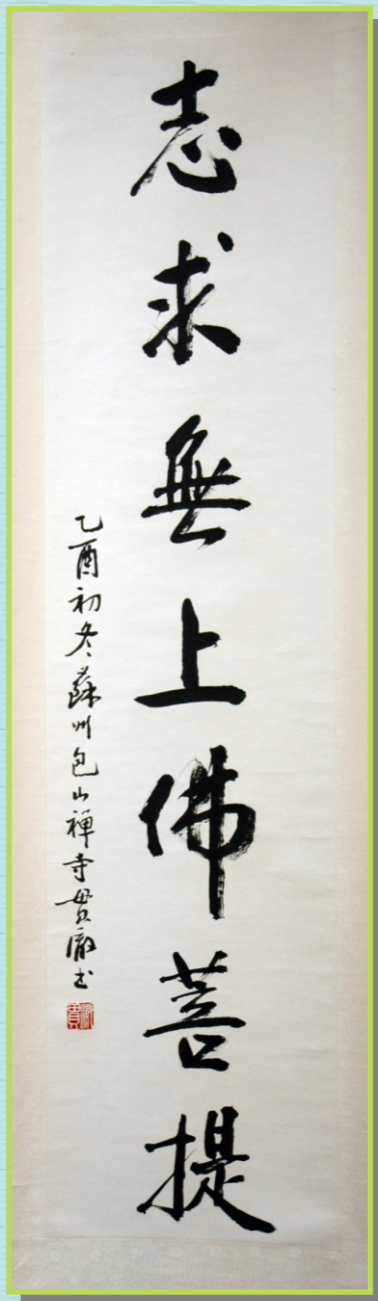 志求無上佛菩提
乙酉初冬蘇州包山禪寺貫澈书